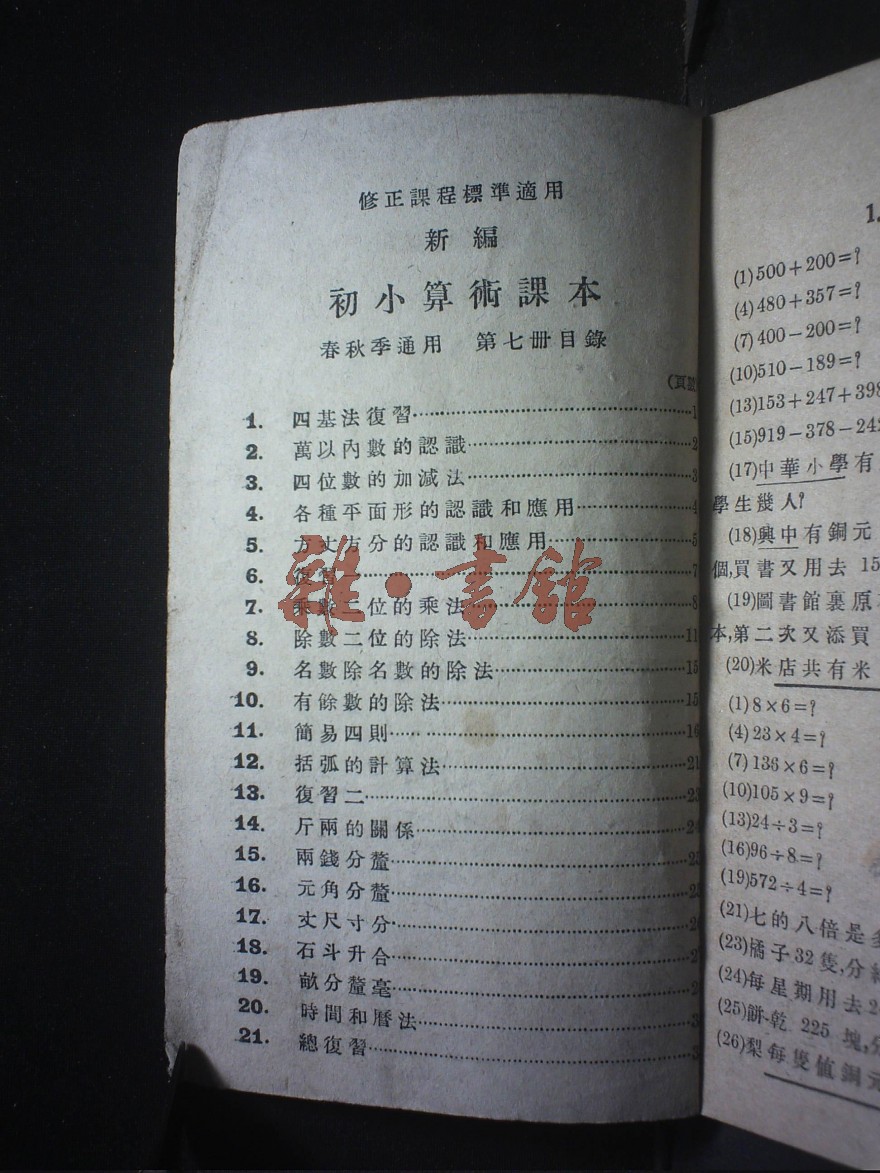 修正課程標準適用
新編
初小算術課本
春秋季通用 第七冊目錄
1. 四基法復習……1
2. 萬以內數的認識……2
3. 四位數的加減法……3
4. 各種平面形的認識和應用……4
5. 方丈方分的認識和應用……5
6. 復習一……7
7. 乘數二位的乘法……8
8. 除數二位的除法……11
9. 名數除名數的除法……15
10. 有餘數的除法……15
11. 簡易四則……16
12. 括弧的計算法……21
13. 復習二……23
14. 斤兩的關係……24
15. 兩錢分釐……25
16. 元角分釐……25
17. 丈尺寸分……
18. 石斗升合……
19. 畝分釐毫……
20. 時間和曆法……
21. 總復習……
雜·書館
1.
(1)500+200=?
(4)480+357=?
(7)400-200=?
(10)510-189=?
(13)153+247+398
(15)919-378-242
(17)中華小學有
學生幾人?
(18)興中有銅元
個,買書又用去 15
(19)圖書館裏原
本,第二次又添買
(20)米店共有米
(1)8×6=?
(4)23×4=?
(7)136×6=?
(10)105×9=?
(13)24÷3=?
(16)96÷8=?
(19)572÷4=?
(21)七的八倍是多
(23)橘子32隻,分給
(24)每星期用去2
(25)餅乾 225 塊,分
(26)梨每隻值銅元